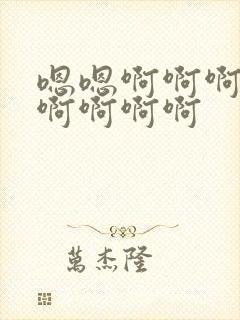 嗯嗯啊啊啊
啊啊啊啊
萬杰隆